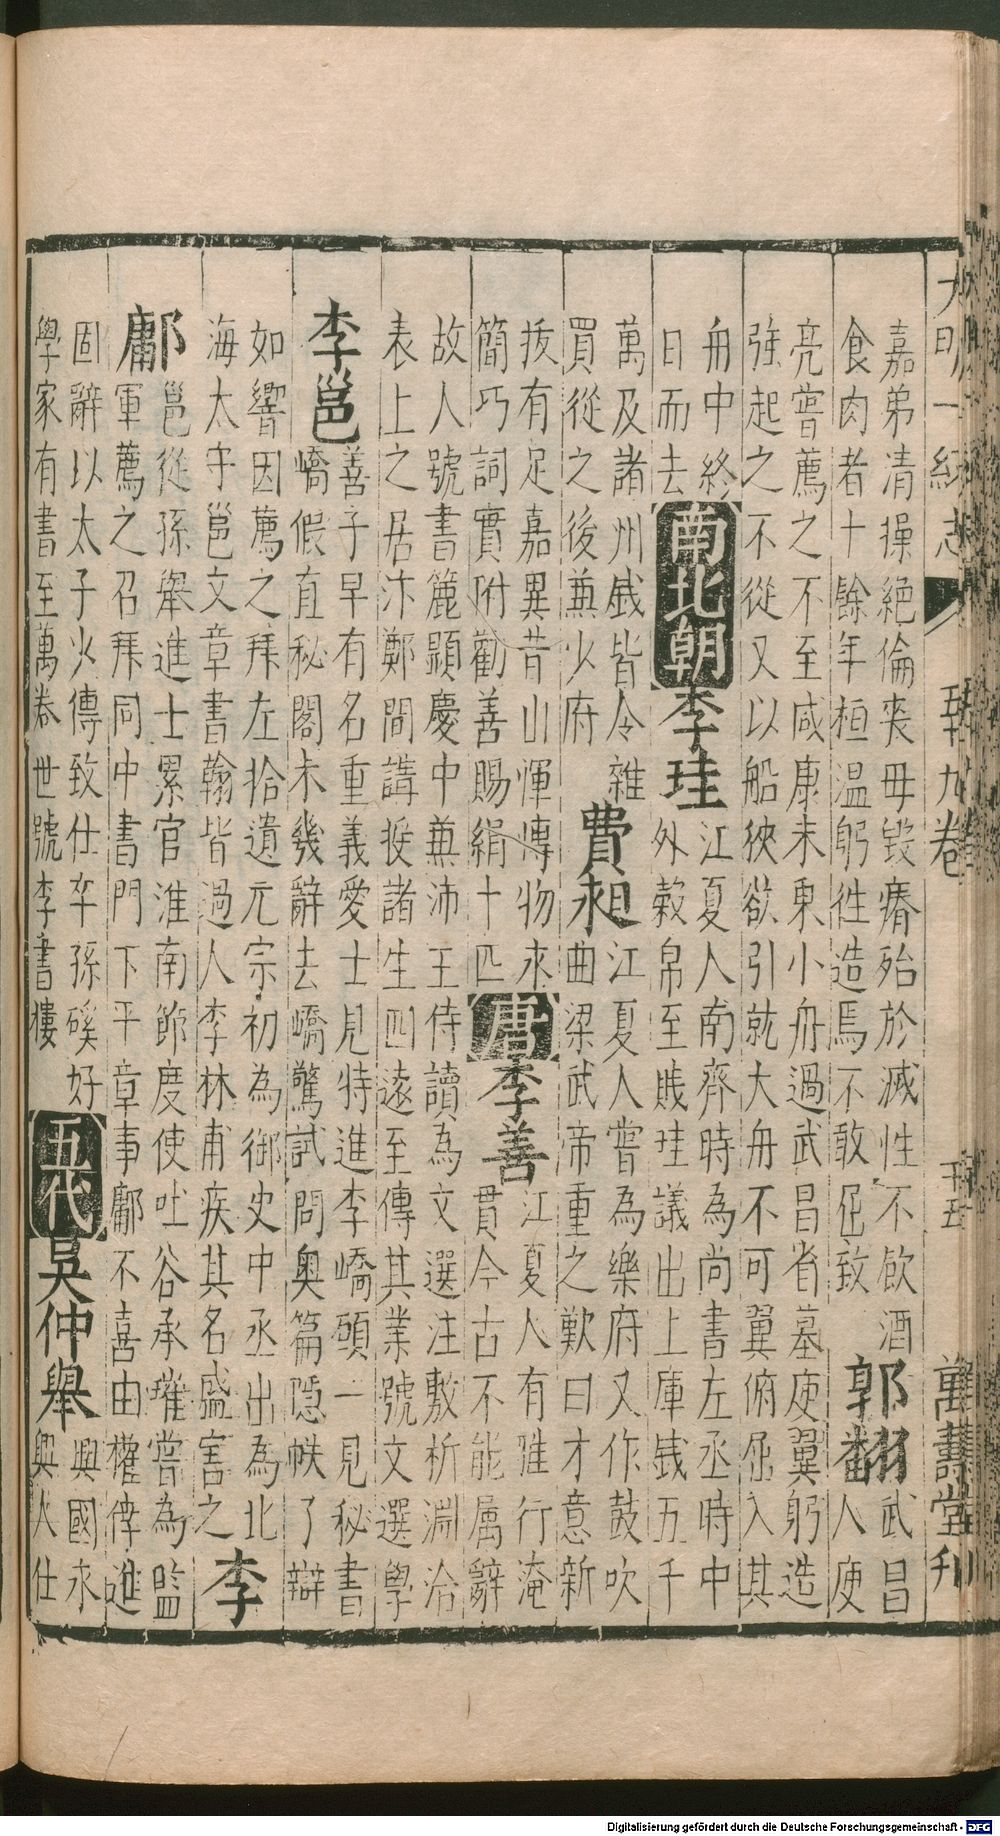 大明一統志 五十九卷 十五 萬壽堂刊
嘉弟清操絕倫喪毋毀瘠殆於滅性不飲酒
食肉者十餘年桓温躬徃造焉不敢屈致
郭翻
武昌
人庾
亮嘗薦之不至咸康末乗小舟過武昌省墓庾翼躬造
強起之不從又以船狹欲引就大舟不可翼俯屈入其
舟中終
日而去
南北朝
李珪
江夏人南齊時為尚書左丞時中
外穀帛至賤珪議出上庫錢五千
萬及諸州錢皆令雜
買從之後兼少府
費昶
江夏人嘗為樂府又作鼓吹
曲梁武帝重之歎曰才意新
拔有足嘉異昔山惲傳物求
簡巧詞實附勸善賜絹十匹
唐
李善
江夏人有雅行淹
貫今古不能属辭
故人號書簏顯慶中兼沛王侍讀為文選注敷析淵洽
表上之居汴鄭間講授諸生四遠至傳其業號文選學
李邕
善子早有名重義愛士見特進李嶠頭一見秘書
嶠假直秘閣未幾辭去嶠驚試問奥篇隠帙了辯
如響因薦之拜左拾遺元宗初為御史中丞出為北
海太守邕文章書翰皆過人李林甫疾其名盛害之
李
鄘
邕從孫舉進士累官淮南節度使吐谷承璀嘗為監
軍薦之召拜同中書門下平章事鄘不喜由權倖進
固辭以太子少傳致仕卒孫磎好
學家有書至萬卷世號李書樓
五代
吳仲舉
興國永
興人仕
Digitalisierung gefördert durch die Deutsche Forschungsgemeinschaft - DFG